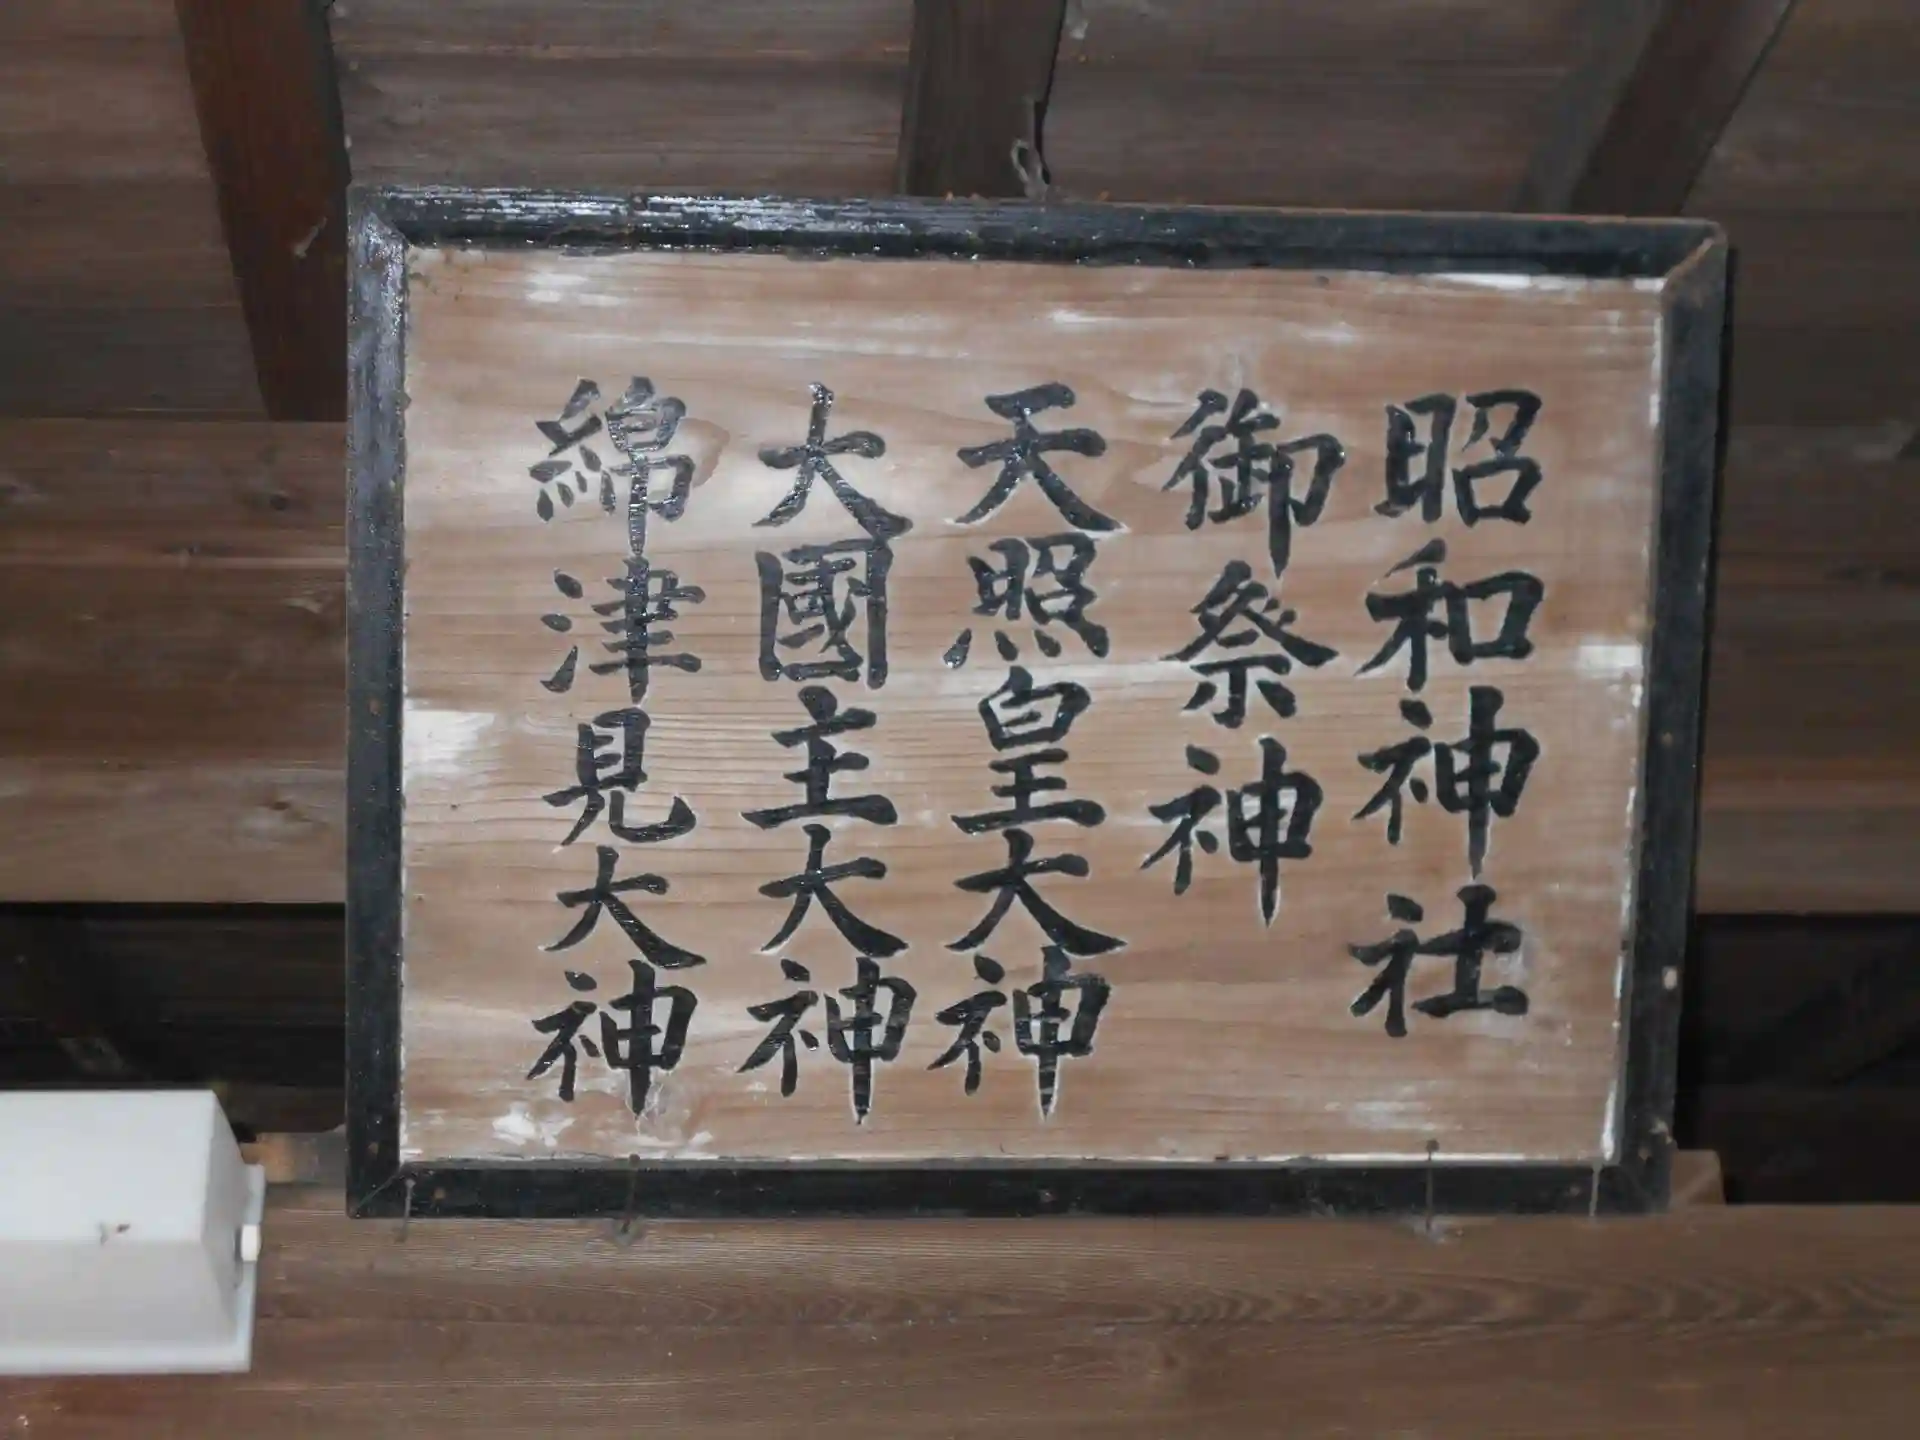 昭和神社
御祭神
天照皇大神
大國主大神
綿津見大神